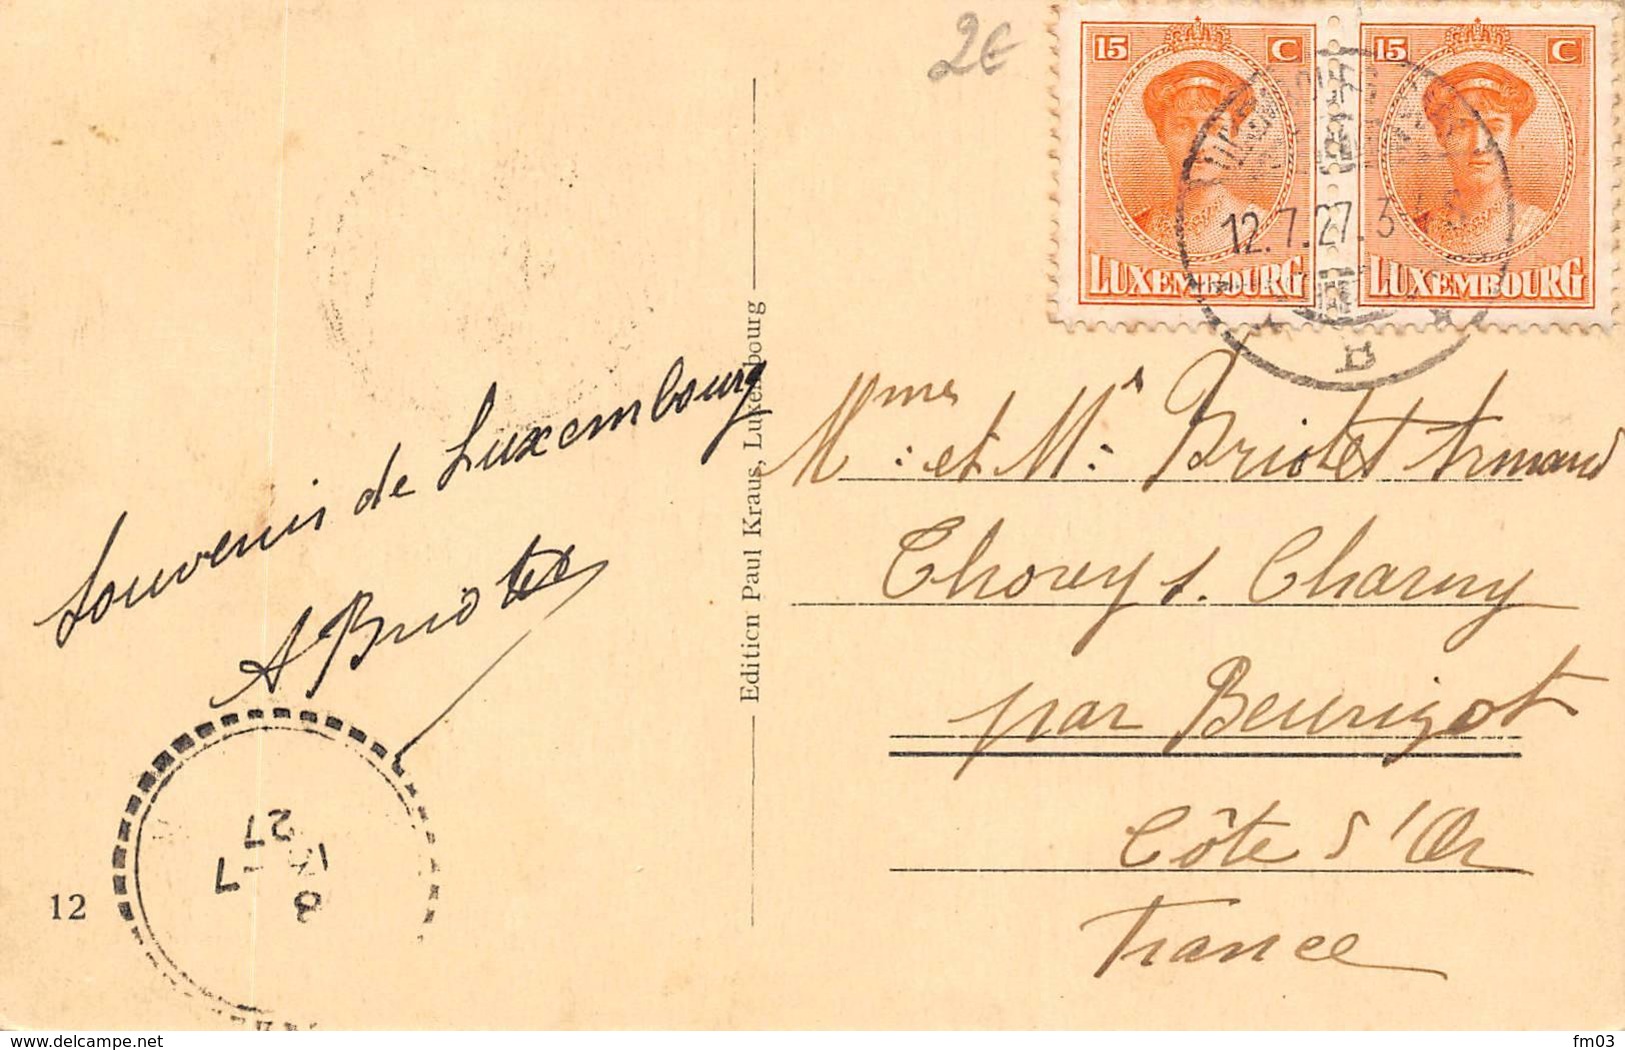 2€
15 C
LUXEMBOURG
15 C
LUXEMBOURG
12.7.27. 3
B
Souvenir de Luxembourg
A Briotet
Edition Paul Kraus, Luxembourg
Mmes et Mrs Briotet Armand
Chorey s. Charny
par Beurizot
Côte d'Or
France
8
-7
27
12
www.delcampe.net
fm03